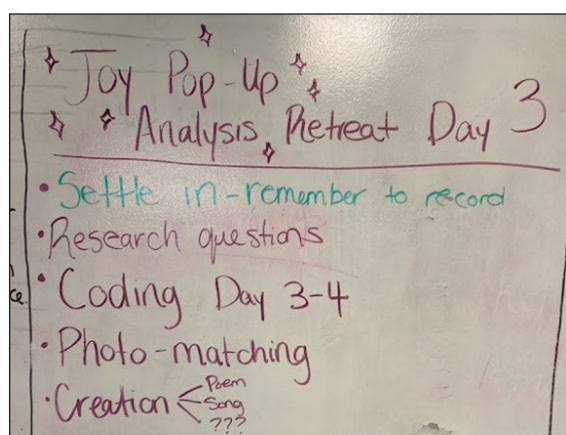 Joy Pop-Up
Analysis Retreat Day 3
• Settle in - remember to record
• Research questions
• Coding Day 3-4
• Photo-matching
• Creation < Poem
Song
???